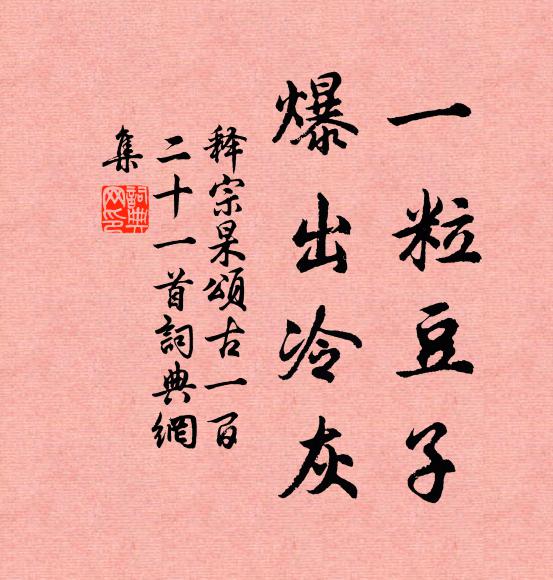 一粒豆子
爆出冷灰
释宗杲頌古一百
二十一首詞典網
集
詞典網印